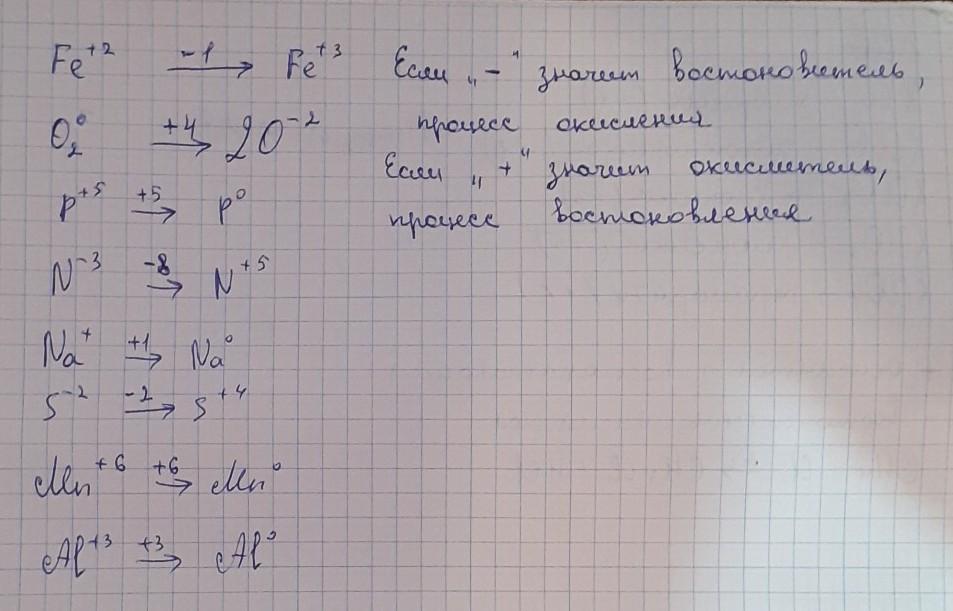 Fe⁺² —⁻¹→ Fe⁺³ Если „-" значит востоновитель,
O₂⁰ —⁺⁴→ 2O⁻² процесс окисления
Если „+" значит окислитель,
P⁺⁵ —⁺⁵→ P⁰ процесс востоновления
N⁻³ —⁻⁸→ N⁺⁵
Na⁺ —⁺¹→ Na⁰
S⁻² —⁻²→ S⁺⁴
Mn⁺⁶ —⁺⁶→ Mn⁰
Al⁺³ —⁺³→ Al⁰